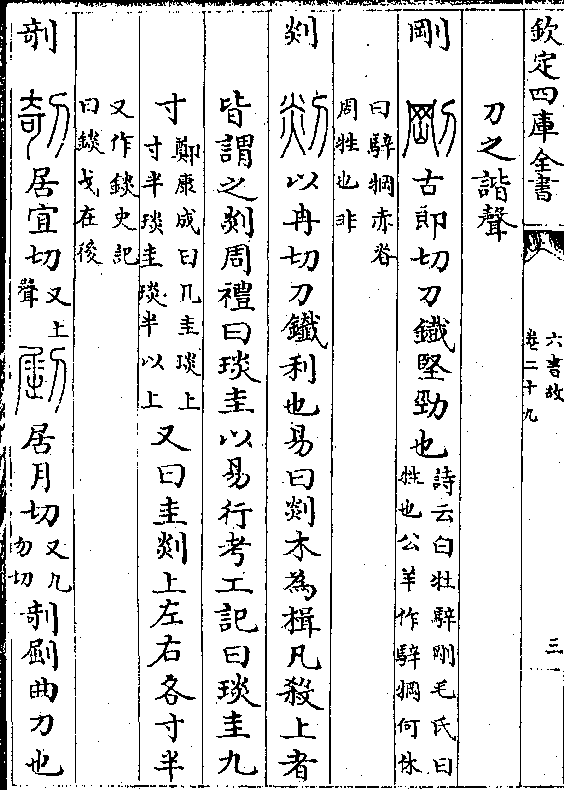 欽定四庫全書
六書故
卷二十九
三
刀之諧聲
剛
古郎切刀鐵堅勁也
詩云白牡騂剛毛氏曰
牲也公羊作騂犅何休
曰騂犅赤脊
周牲也非
剡
以冉切刀鐵利也易曰剡木為楫凡殺上者
皆謂之剡周禮曰琰圭以易行考工記曰琰圭九
寸
鄭康成曰凡圭琰上
寸半琰圭琰半以上
又曰圭剡上左右各寸半
又作錟史記
曰錟戈在後
剞
居宜切
又上
聲
居月切
又九
勿切
剞劂曲刀也